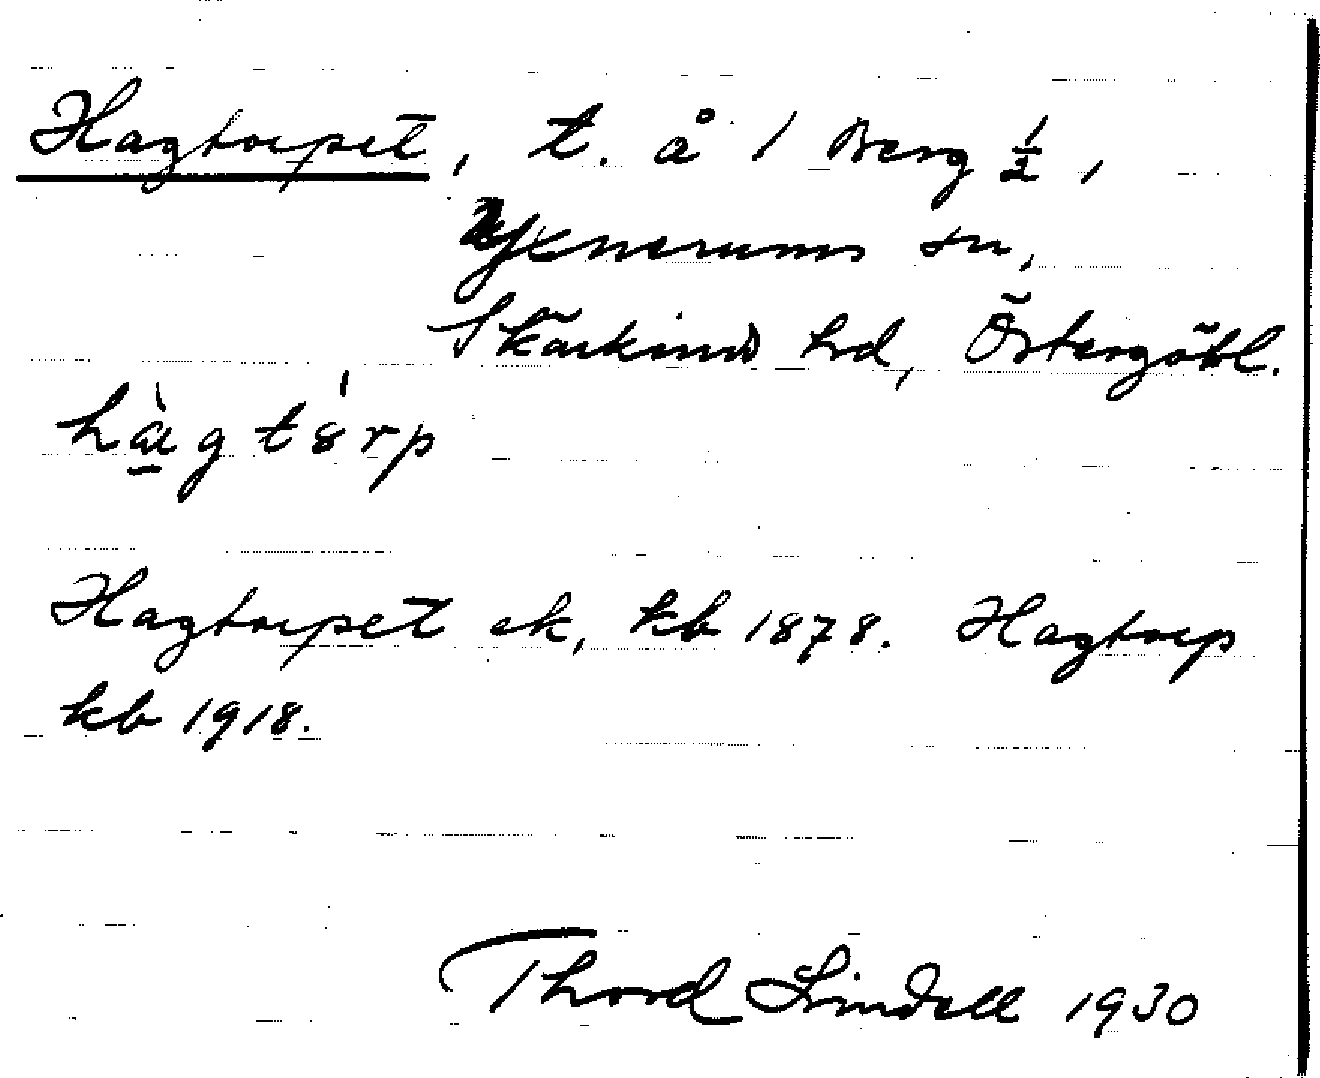 Hagtorpet, t. å 1 Berg ½,
Yxnerums sn,
Skärkinds hd, Östergötl.
hàgtórp
Hagtorpet ek, kb 1878. Hagtorp
kb 1918.
Thord Lindell 1930